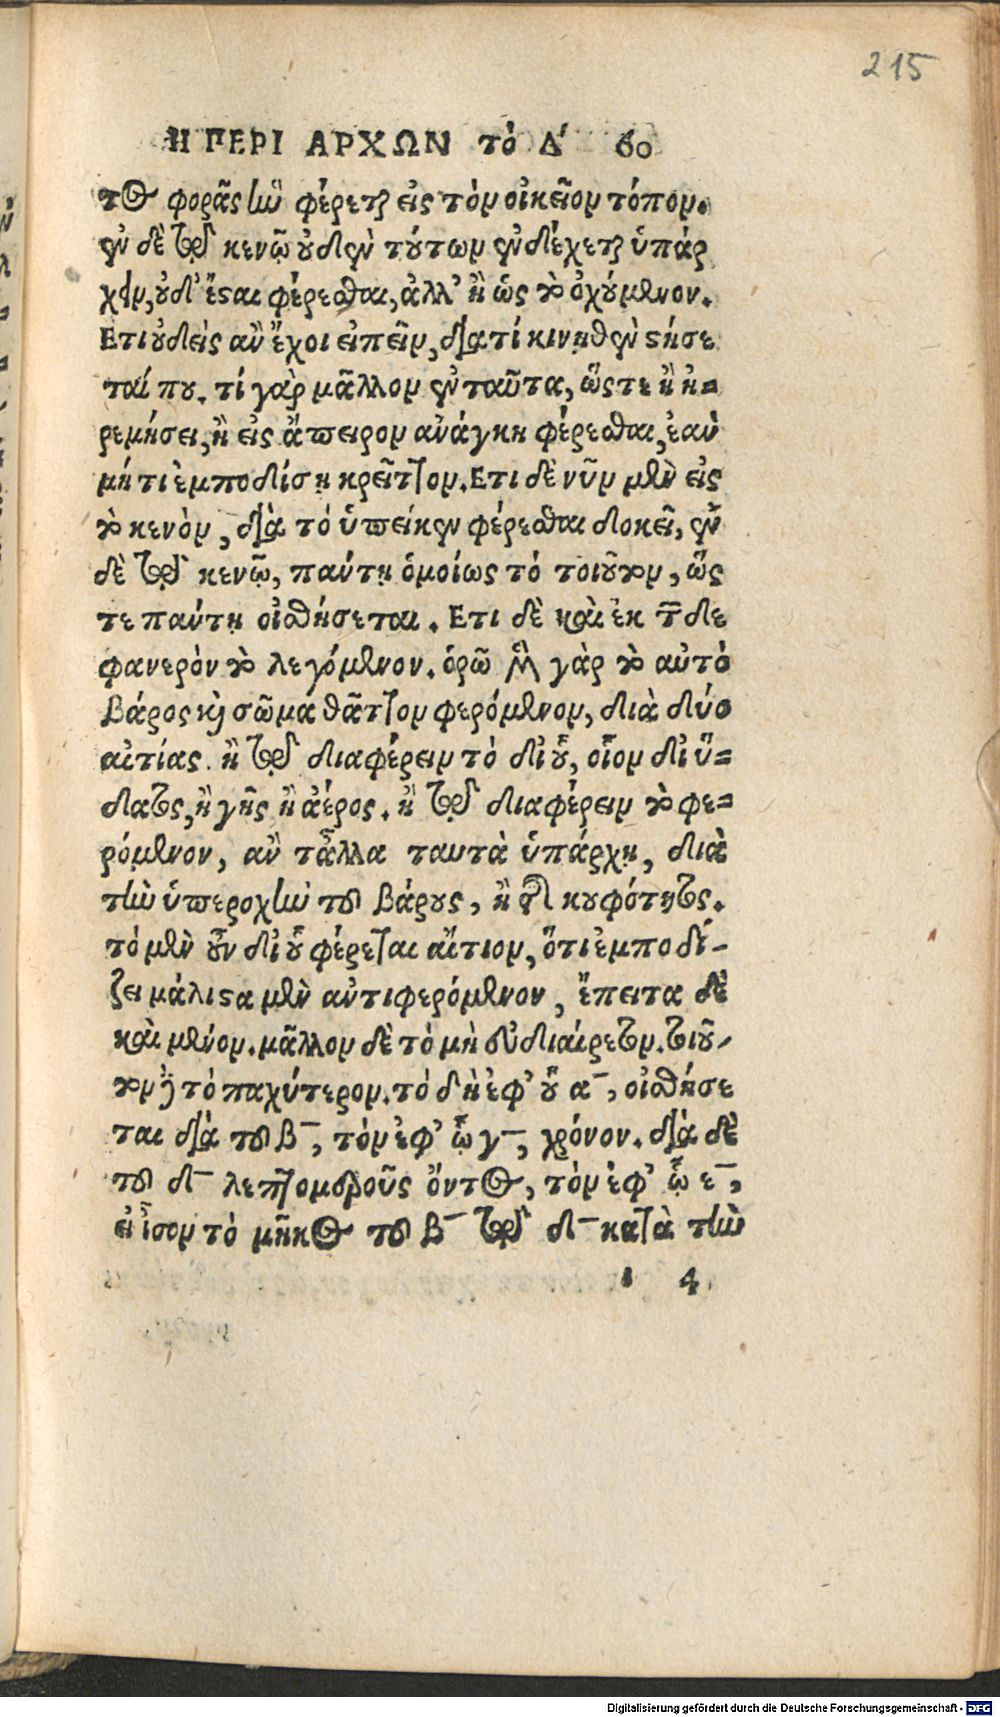 215
Η ΠΕΡΙ ΑΡΧΩΝ τὸ Δʹ 60
τος φορᾶς ἣν φέρεται εἰς τὸν οἰκεῖον τόπον.
ἐν δὲ τῷ κενῷ οὐδὲν τούτων ἐνδέχεται ὑπάρ
χειν, οὐδ' ἔσται φέρεσθαι, ἀλλ' ἢ ὡς τὸ ὀχούμενον.
Ετι οὐδεὶς ἂν ἔχοι εἰπεῖν, διατί κινηθὲν στήσε
ταί που. τί γὰρ μᾶλλον ἐνταῦτα, ὥςτε ἢ ἠ=
ρεμήσει, ἢ εἰς ἄπειρον ἀνάγκη φέρεσθαι, ἐὰν
μή τι ἐμποδίσῃ κρεῖττον. Ετι δὲ νῦν μὲν εἰς
τὸ κενὸν, διὰ τὸ ὑπείκειν φέρεσθαι δοκεῖ, ἐν
δὲ τῷ κενῷ, πάντῃ ὁμοίως τὸ τοιοῦτον, ὥς
τε πάντῃ οἰσθήσεται. Ετι δὲ καὶ ἐκ τῶνδε
φανερὸν τὸ λεγόμενον. ὁρῶμεν γὰρ τὸ αὐτὸ
βάρος καὶ σῶμα θᾶττον φερόμενον, διὰ δύο
αἰτίας. ἢ τῷ διαφέρειν τὸ δι' οὗ, οἷον δι' ὕ=
δατος, ἢ γῆς ἢ ἀέρος. ἢ τῷ διαφέρειν τὸ φε=
ρόμενον, ἂν τἆλλα ταυτὰ ὑπάρχῃ, διὰ
τὴν ὑπεροχὴν τοῦ βάρους, ἢ τῆς κουφότητος.
τὸ μὲν οὖν δι' οὗ φέρεται αἴτιον, ὅτι ἐμποδί-
ζει μάλιστα μὲν ἀντιφερόμενον, ἔπειτα δὲ
καὶ μένον. μᾶλλον δὲ τὸ μὴ εὐδιαίρετον. τοιοῦ-
τον δὲ τὸ παχύτερον. τὸ δὴ ἐφ' οὗ α¯, οἰσθήσε
ται διὰ τοῦ β¯, τὸν ἐφ' ᾧ γ¯, χρόνον. διὰ δὲ
τοῦ δ¯ λεπτομεροῦς ὄντος, τὸν ἐφ' ᾧ ε¯,
εἰ ἴσον τὸ μῆκος τοῦ β¯ τῷ δ¯ κατὰ τὴν
ι 4
Digitalisierung gefördert durch die Deutsche Forschungsgemeinschaft - DFG